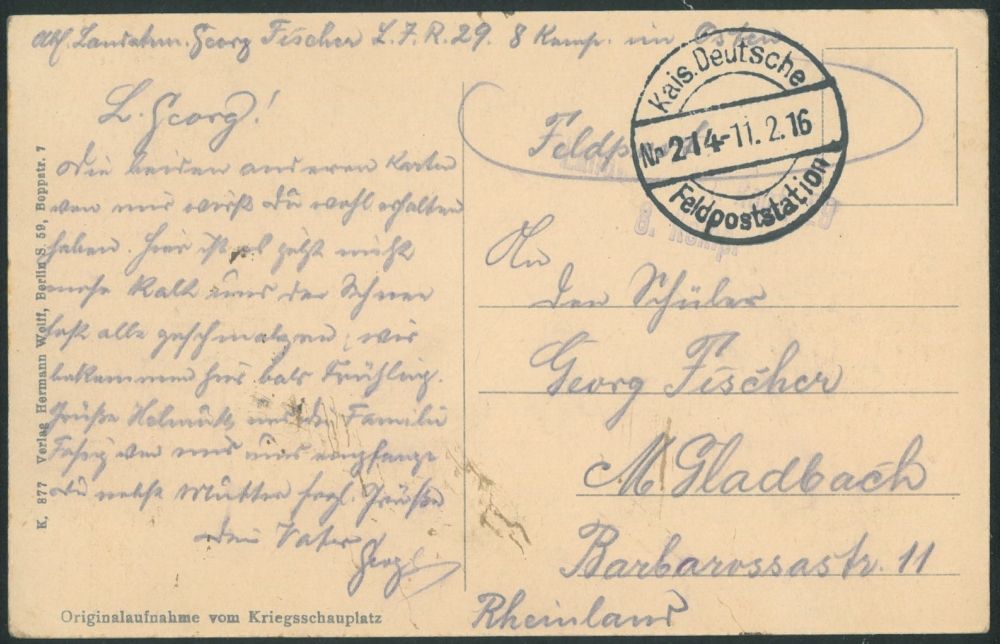 Abs. Landstm. Georg Fischer L. I. R. 29. 8 Komp. im Osten
Kais. Deutsche
Nr 214 - 11. 2. 16
Feldpoststation
Feldpost
8. Komp.
L. Georg!
Die beiden anderen Karten
von mir wirst Du wohl erhalten
haben. Hier ist es jetzt nicht
mehr kalt und der Schnee
fast alle geschmolzen, wir
bekommen hier bald Frühling.
Grüße Helmuth und die Familie
von mir und empfange
Du nebst Mutter herzl. Grüße
Dein Vater
Georg
An
den Schüler
Georg Fischer
M Gladbach
Barbarossastr. 11
Rheinland
K. 877 Verlag Hermann Wolff, Berlin S. 59, Boppstr. 7
Originalaufnahme vom Kriegsschauplatz